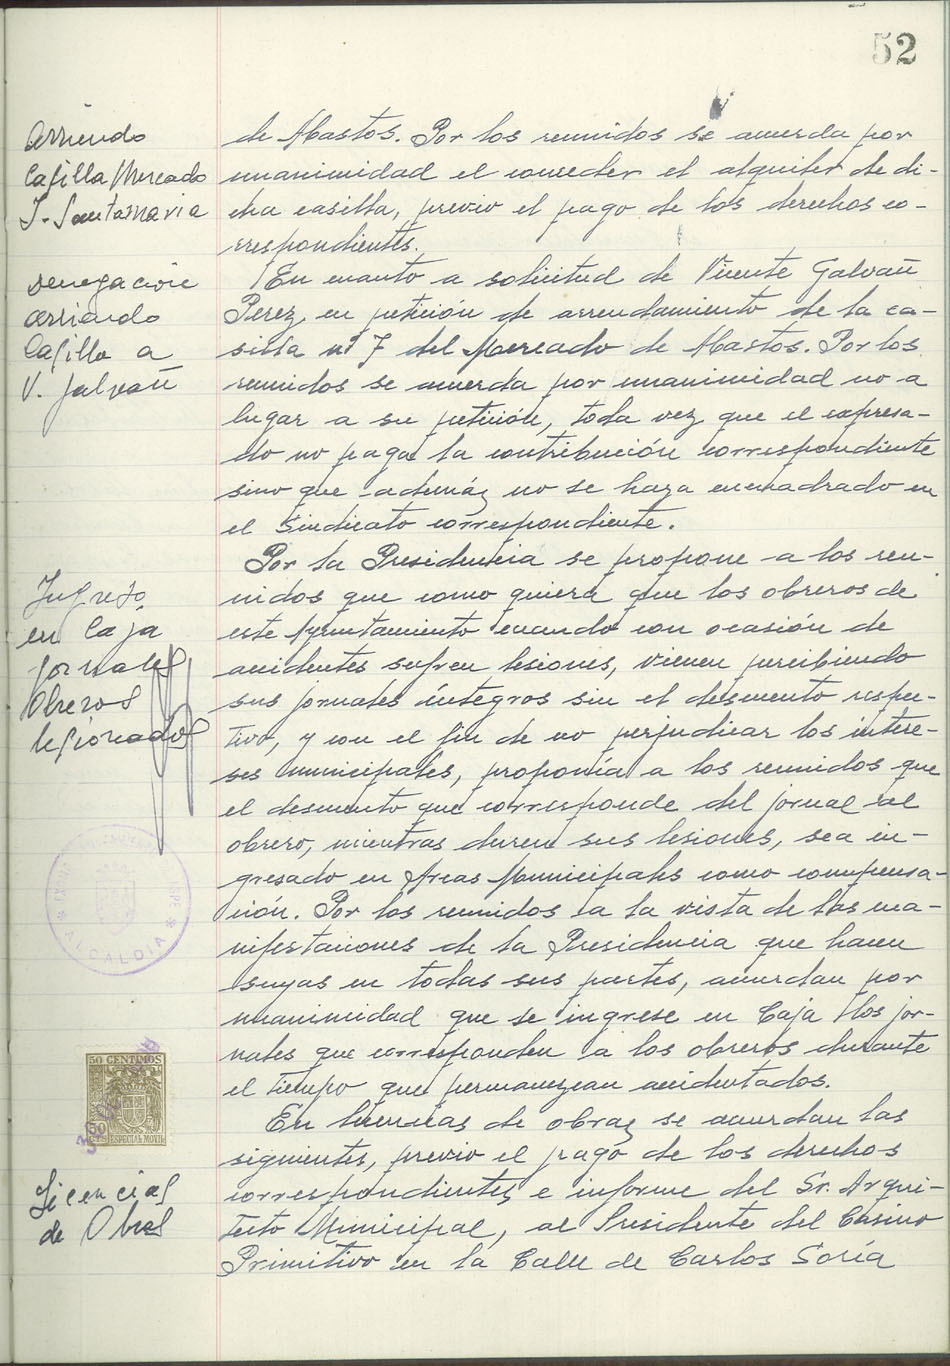 52
Arriendo
Casilla Mercado
J. Santamaria
de Abastos. Por los reunidos se acuerda por
unanimidad el conceder el alquiler de di-
cha casilla, previo el pago de los derechos co-
rrespondientes.
Denegación
arriendo
Casilla a
V. Galvañ
En cuanto a solicitud de Vicente Galvañ
Perez, en petición de arrendamiento de la ca-
silla nº 7 del Mercado de Abastos. Por los
reunidos se acuerda por unanimidad no a
lugar a su petición, toda vez que el expresa-
do no paga la contribución correspondiente
sino que además no se haya encuadrado en
el Sindicato correspondiente.
Ingreso
en Caja
jornales
Obreros
lesionados
Por la Presidencia se propone a los reu-
nidos que como quiera que los obreros de
este Ayuntamiento cuando con ocasión de
accidentes sufren lesiones, vienen percibiendo
sus jornales íntegros sin el descuento respec-
tivo, y con el fin de no perjudicar los intere-
ses municipales, proponía a los reunidos que
el descuento que corresponde del jornal al
obrero, mientras duren sus lesiones, sea in-
gresado en Arcas Municipales como compensa-
ción. Por los reunidos a la vista de las ma-
nifestaciones de la Presidencia que hacen
suyas en todas sus partes, acuerdan por
unanimidad que se ingrese en Caja los jor-
nales que corresponden a los obreros durante
el tiempo que permanezcan accidentados.
ALCALDIA
50 CENTIMOS
50
CTS
ESPECIAL MOVIL
Licencias
de Obras
En licencias de obras se acuerdan las
siguientes, previo el pago de los derechos
correspondientes e informe del Sr. Arqui-
tecto Municipal, al Presidente del Casino
Primitivo en la Calle de Carlos Soria